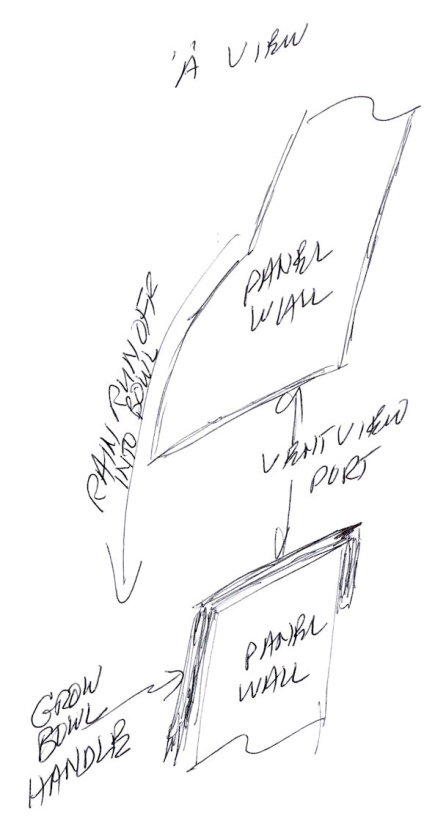 'A' VIEW
PANEL
WALL
RAIN RUN OFF
INTO BOWL
VENT VIEW
PORT
PANEL
WALL
GROW
BOWL
HANDLE